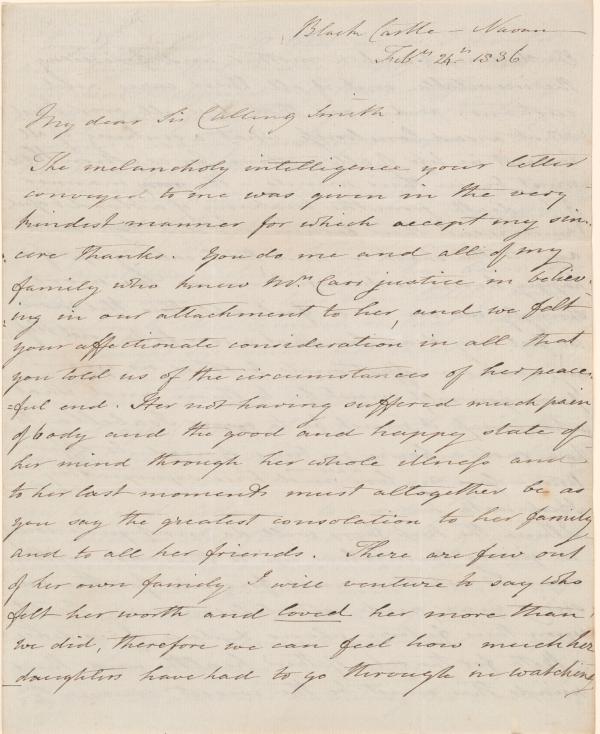 Black Castle - Navan
Feb.ry 24th 1836
My dear Sir Culling Smith
The melancholy intelligence your letter
conveyed to me was given in the very
kindest manner for which accept my sin
cere thanks. You do me and all of my
family who knew Mrs. Carr justice in believ-
ing in our attachment to her, and we felt
your affectionate consideration in all that
you told us of the circumstances of her peace-
=ful end. Her not having suffered much pain
of body and the good and happy state of
her mind through her whole illness and
to her last moments must altogether be as
you say the greatest consolation to her family
and to all her friends. There are few out
of her own family I will venture to say who
felt her worth and loved her more than
we did, therefore we can feel how much her
daughters have had to go through in watching